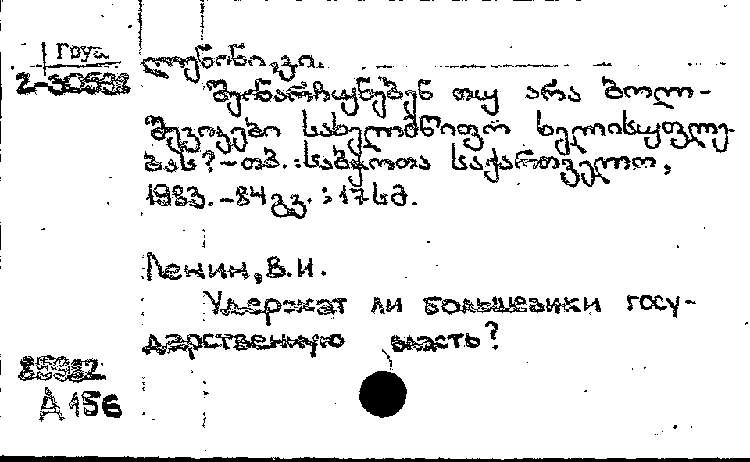 Гоуа
ლენინი, ვ.ი.
2-30532
შეინარჩუნებენ თუ არა ბოლ-
შევიკები სახელმწიფო ხელისუფლე-
ბას? - თბ. : საბჭოთა საქართველო,
1983. - 84 გვ. ; 17 სმ.
Ленин, В.И.
Удержат ли большевики госу-
дарственную власть?
85982
А 156